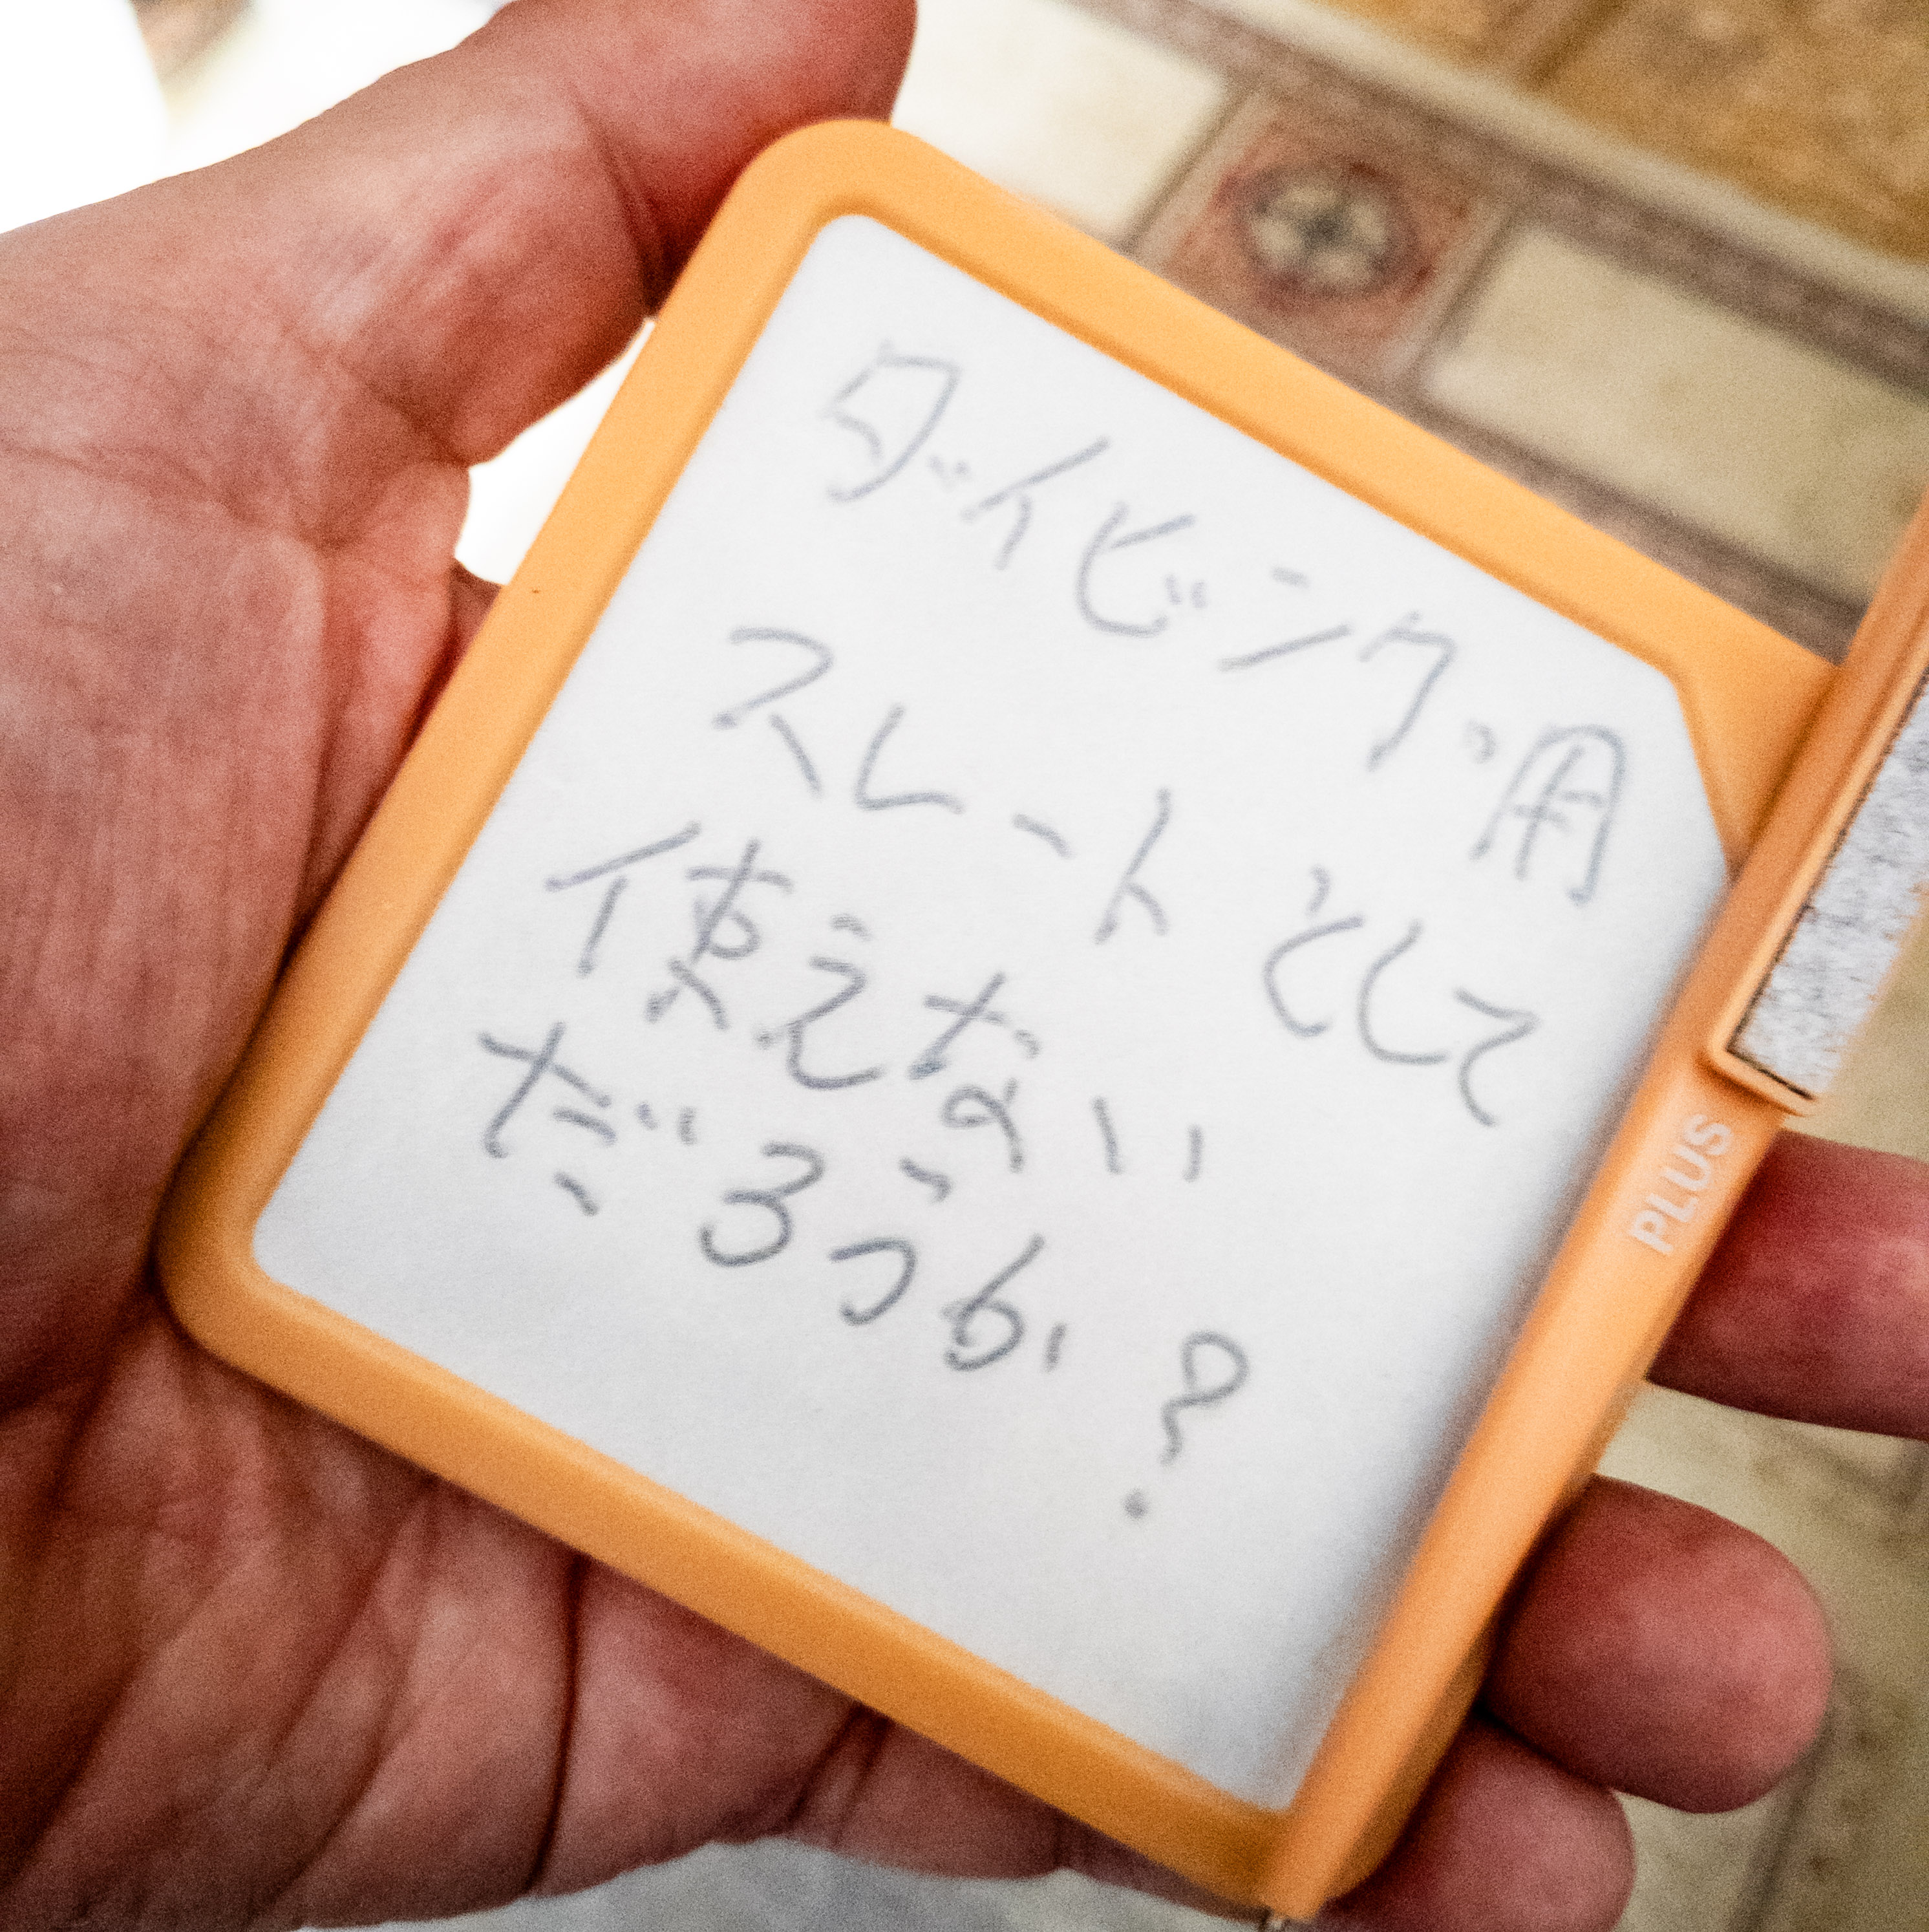 ダイビング用
スレートとして
使えない
だろうか?
PLUS